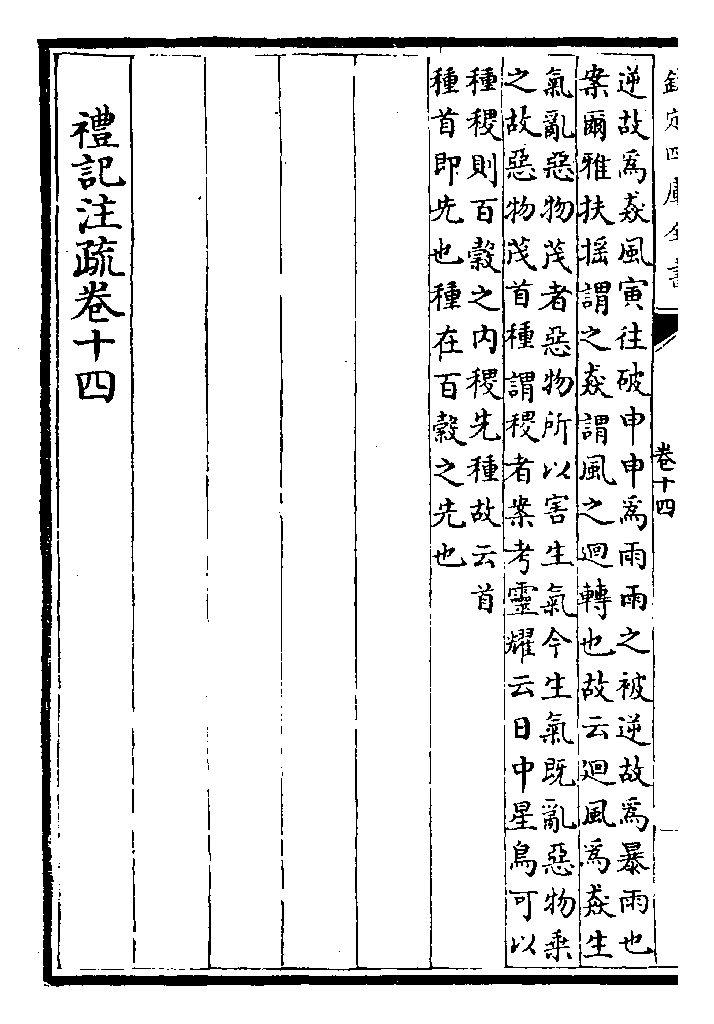 欽定四庫全書
卷十四
逆故為猋風寅往破申申為雨雨之被逆故為暴雨也
案爾雅扶揺謂之猋謂風之迴轉也故云迴風為猋生
氣亂惡物茂者惡物所以害生氣今生氣既亂惡物乗
之故惡物茂首種謂稷者案考靈耀云日中星鳥可以
種稷則百穀之内稷先種故云首
種首即先也種在百穀之先也
禮記注疏卷十四